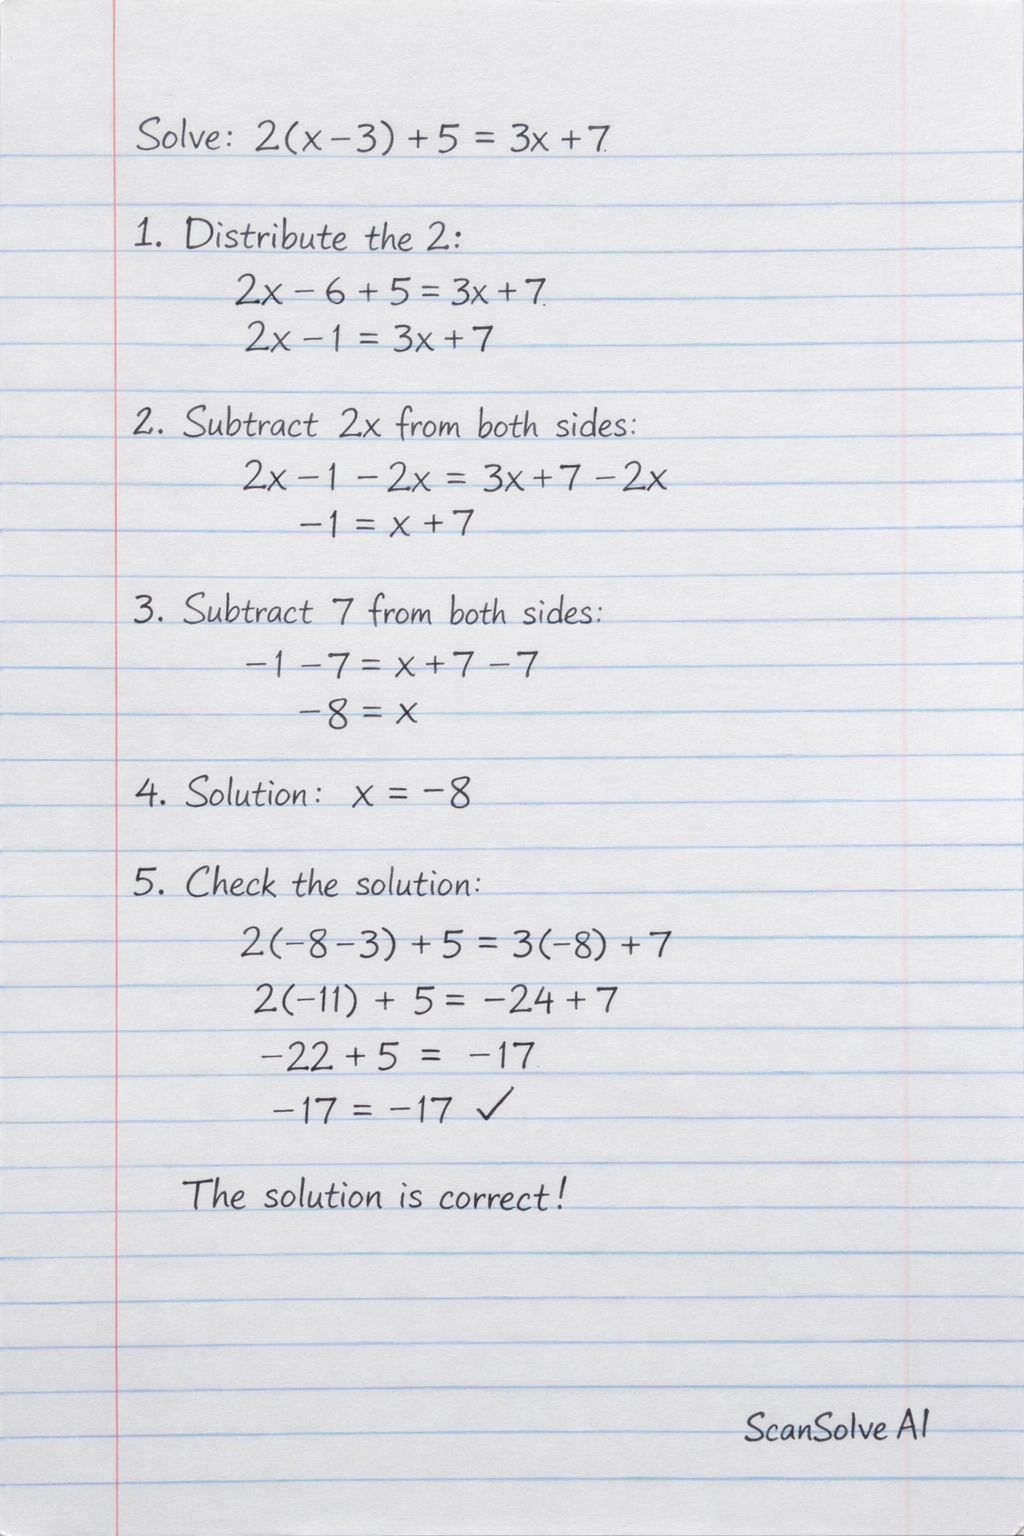 Solve: 2(x-3) + 5 = 3x + 7
1. Distribute the 2:
2x - 6 + 5 = 3x + 7
2x - 1 = 3x + 7
2. Subtract 2x from both sides:
2x - 1 - 2x = 3x + 7 - 2x
-1 = x + 7
3. Subtract 7 from both sides:
-1 - 7 = x + 7 - 7
-8 = x
4. Solution: x = -8
5. Check the solution:
2(-8-3) + 5 = 3(-8) + 7
2(-11) + 5 = -24 + 7
-22 + 5 = -17
-17 = -17 ✓
The solution is correct!
ScanSolve AI